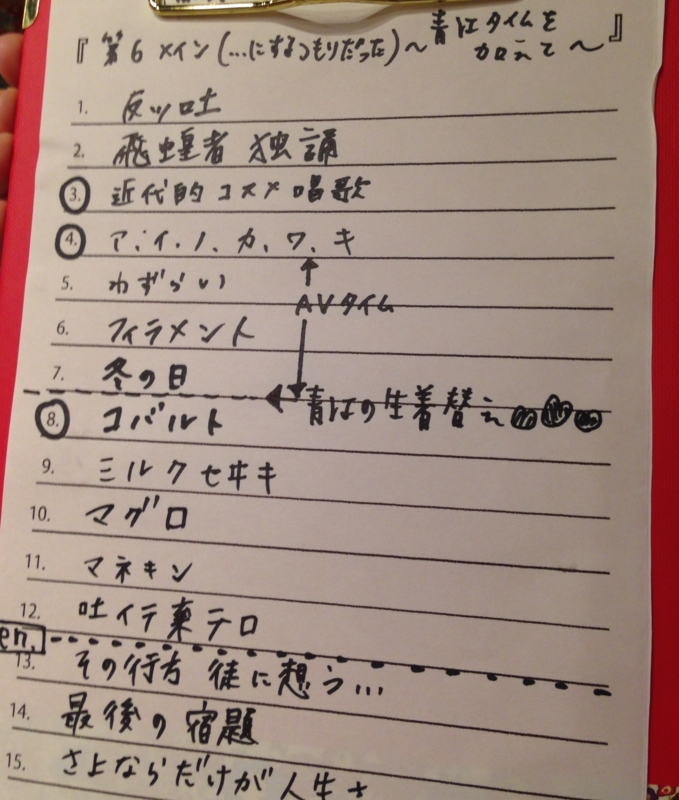 『第6 メイン(…にするつもりだった)〜青はタイムを加えて〜』
1. 反ッ吐
2. 飛蝗者 独誦
3. 近代的コスメ唱歌
4. ア、イ、ノ、カ、ワ、キ
5. わずらい
AVタイム
6. フィラメント
7. 冬の日
青はの生着替え
8. コバルト
9. ミルクセヰキ
10. マグロ
11. マネキン
12. 吐イテ棄テロ
en.
13. その行方 徒に想う...
14. 最後の宿題
15. さよならだけが人生さ